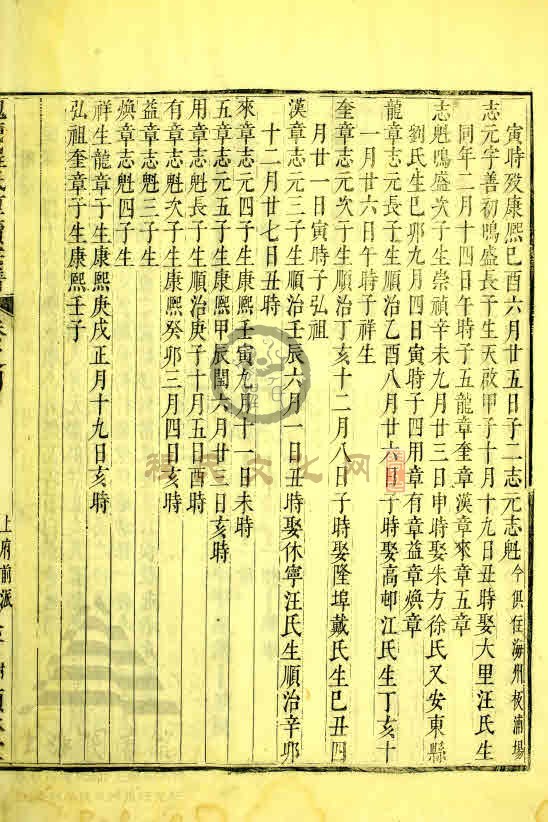 寅時歿康熙己酉六月廿五日子二志元志魁今俱住海州板浦場
志元字善初鳴盛長子生天啟甲子十月十九日丑時娶大里汪氏生
同年二月十四日午時子五龍章奎章漢章來章五章
志魁鳴盛次子生崇禎辛未九月廿三日申時娶朱方徐氏又安東縣
劉氏生己卯九月四日寅時子四用章有章益章煥章
龍章志元長子生順治乙酉八月廿六日子時娶高邨江氏生丁亥十
一月廿六日午時子祥生
奎章志元次子生順治丁亥十二月八日子時娶隆埠戴氏生己丑四
月廿一日寅時子弘祖
漢章志元三子生順治壬辰六月一日丑時娶休寧汪氏生順治辛卯
十二月廿七日丑時
來章志元四子生康熙壬寅九月十一日未時
五章志元五子生康熙甲辰閏六月廿三日亥時
用章志魁長子生順治庚子十月五日酉時
有章志魁次子生康熙癸卯三月四日亥時
益章志魁三子生
煥章志魁四子生
祥生龍章子生康熙庚戌正月十九日亥時
弘祖奎章子生康熙壬子
上府前派
程氏文化网